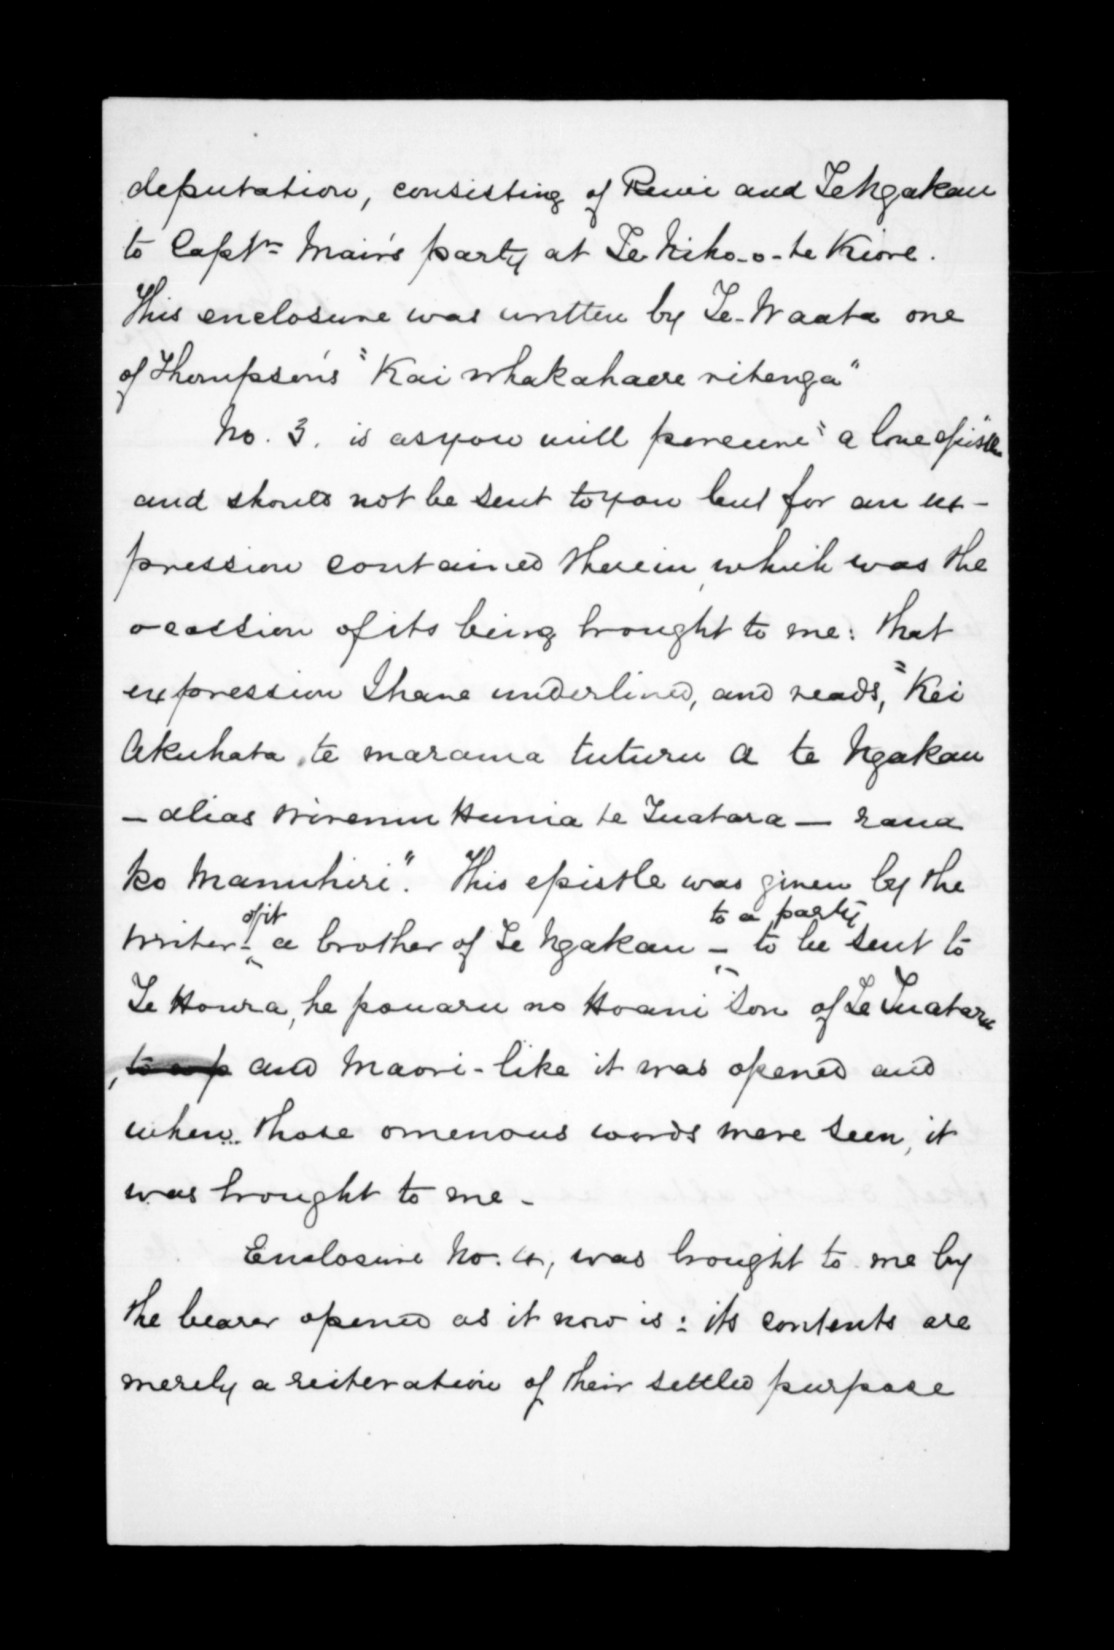 deputation, consisting of Rewi and Te Ngakau
to Captn Mair's party at Te Niho-o-te Kiore.
This enclosure was written by Te-Waata one
of Thompson's "Kai whakahaere ritenga"
No. 3. is as you will perceive "a love epistle"
and should not be sent to you but for an ex-
pression contained therein, which was the
ocassion of its being brought to me: that
expression I have underlined, and reads, "Kei
Akuhata, te marama tuturu a te Ngakau
- alias Wiremu Hunia te Tuatara - raua
ko Manuhiri". This epistle was given by the
of it to a party
writer - a brother of Te Ngakau - to be sent to
Te Houra, he pouaru no Hoani son of Te Tuatara
, to a p and Maori-like it was opened and
when those omenous words were seen, it
was brought to me -
Enclosure No. 4, was brought to me by
the bearer opened as it now is: its contents are
merely a reiteration of their settled purpose